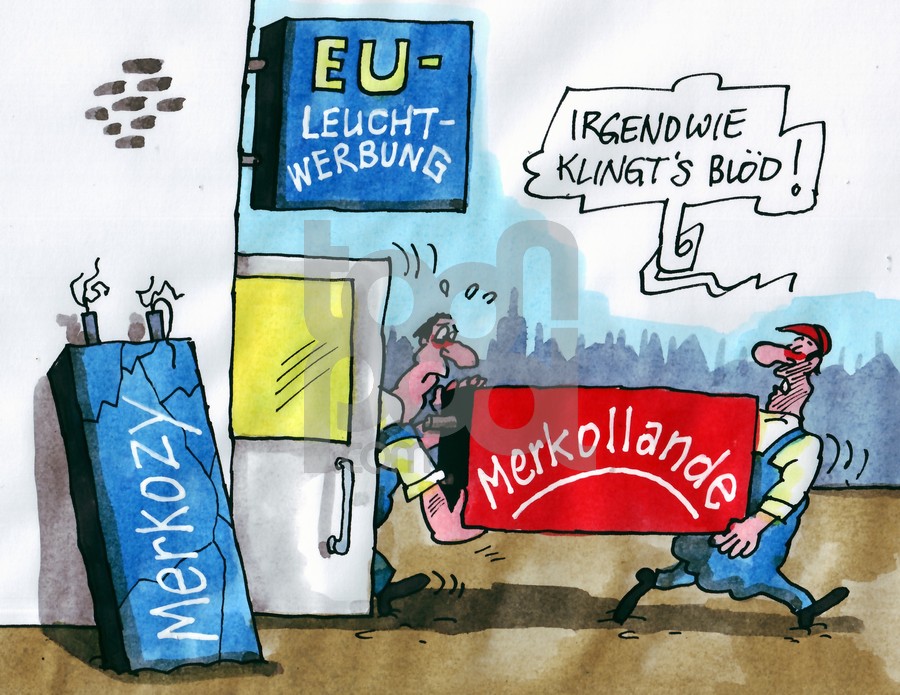 EU-
LEUCHT-
WERBUNG
IRGENDWIE
KLINGT'S BLÖD!
Merkozy
Merkollande
toon
pool